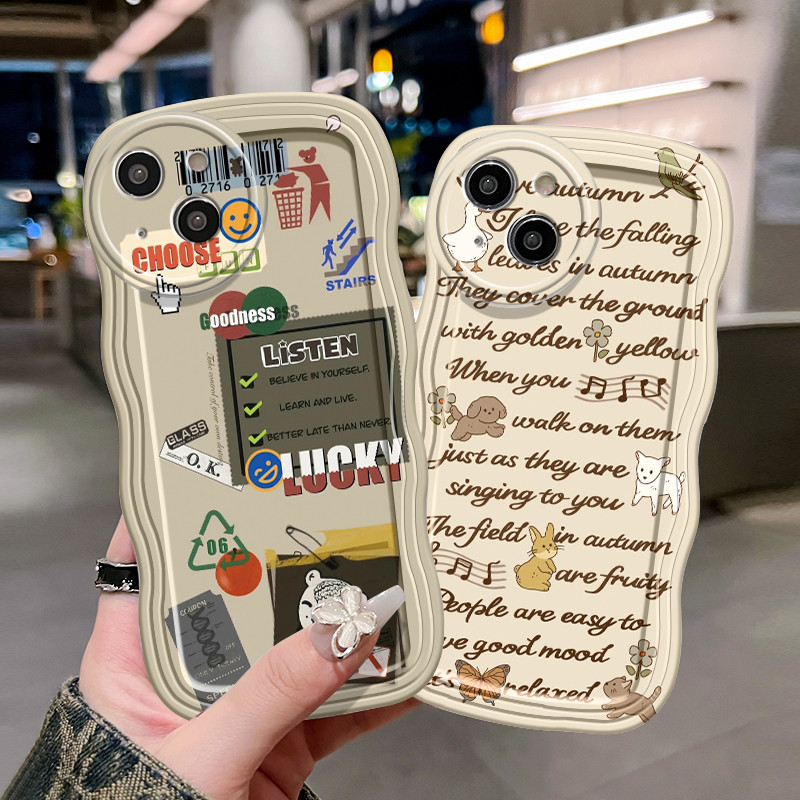 0 2716
CHOOSE
STAIRS
Goodness
LiSTEN
BELIEVE IN YOURSELF.
LEARN AND LIVE.
BETTER LATE THAN NEVER.
GLASS
O.K.
LUCKY
06
COUPON
autumn
the falling
leaves in autumn
They cover the ground
with golden yellow
When you
walk on them
just as they are
singing to you
The field in autumn
are fruity
People are easy to
good mood
relaxed